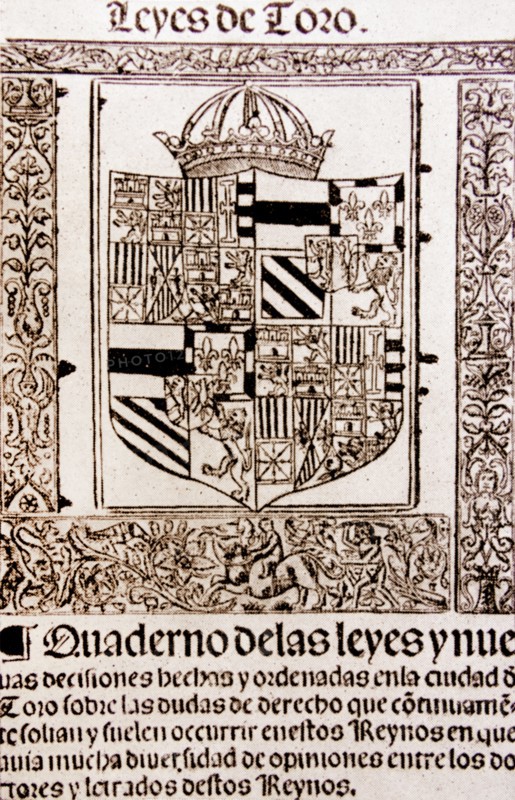 Leyes de Toro.
¶ Quaderno delas leyes y nue
uas decisiones hechas y ordenadas enla ciudad đ
Toro sobre las dudas de derecho que cõtinuamẽ-
te solian y suelen occurrir enestos Reynos en que
auia mucha diuersidad de opiniones entre los do
ctores y letrados destos Reynos.